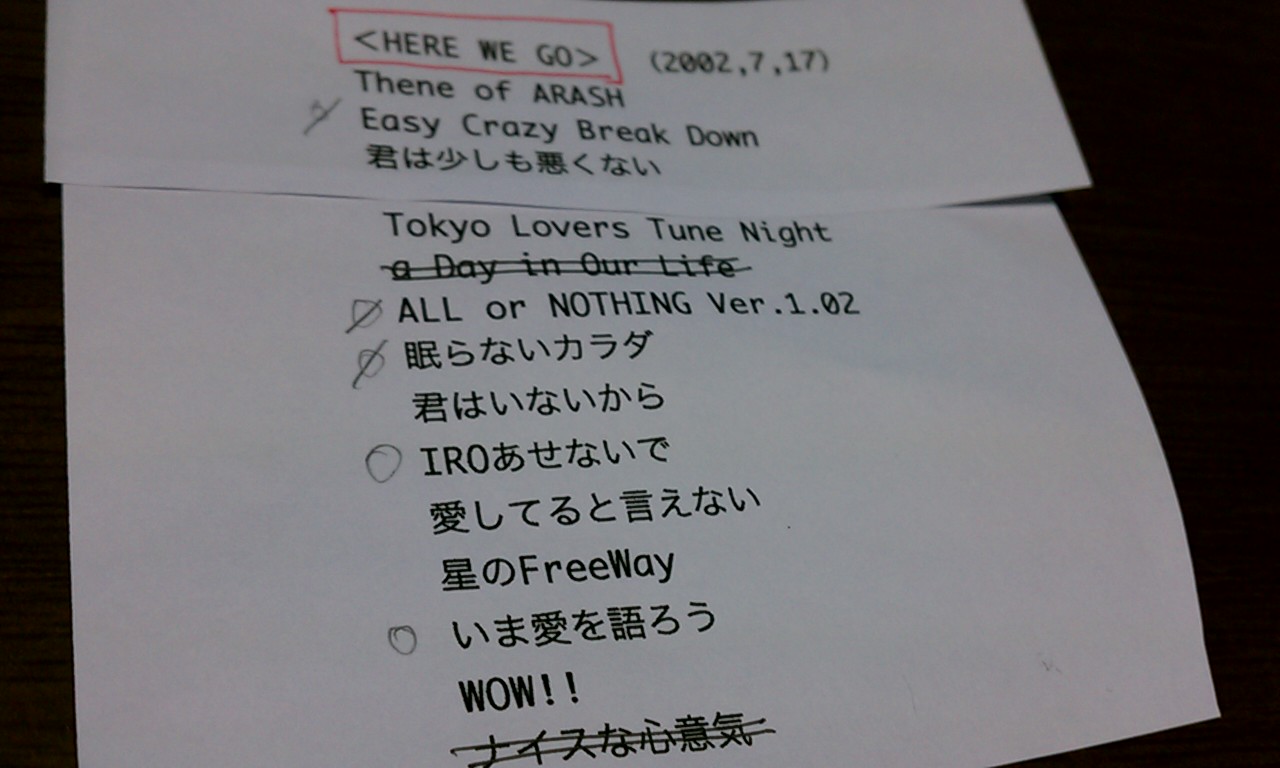 <HERE WE GO> (2002,7,17)
Thene of ARASH
Easy Crazy Break Down
君は少しも悪くない
Tokyo Lovers Tune Night
a Day in Our Life
ALL or NOTHING Ver.1.02
眠らないカラダ
君はいないから
IROあせないで
愛してると言えない
星のFreeWay
いま愛を語ろう
WOW!!
ナイスな心意気